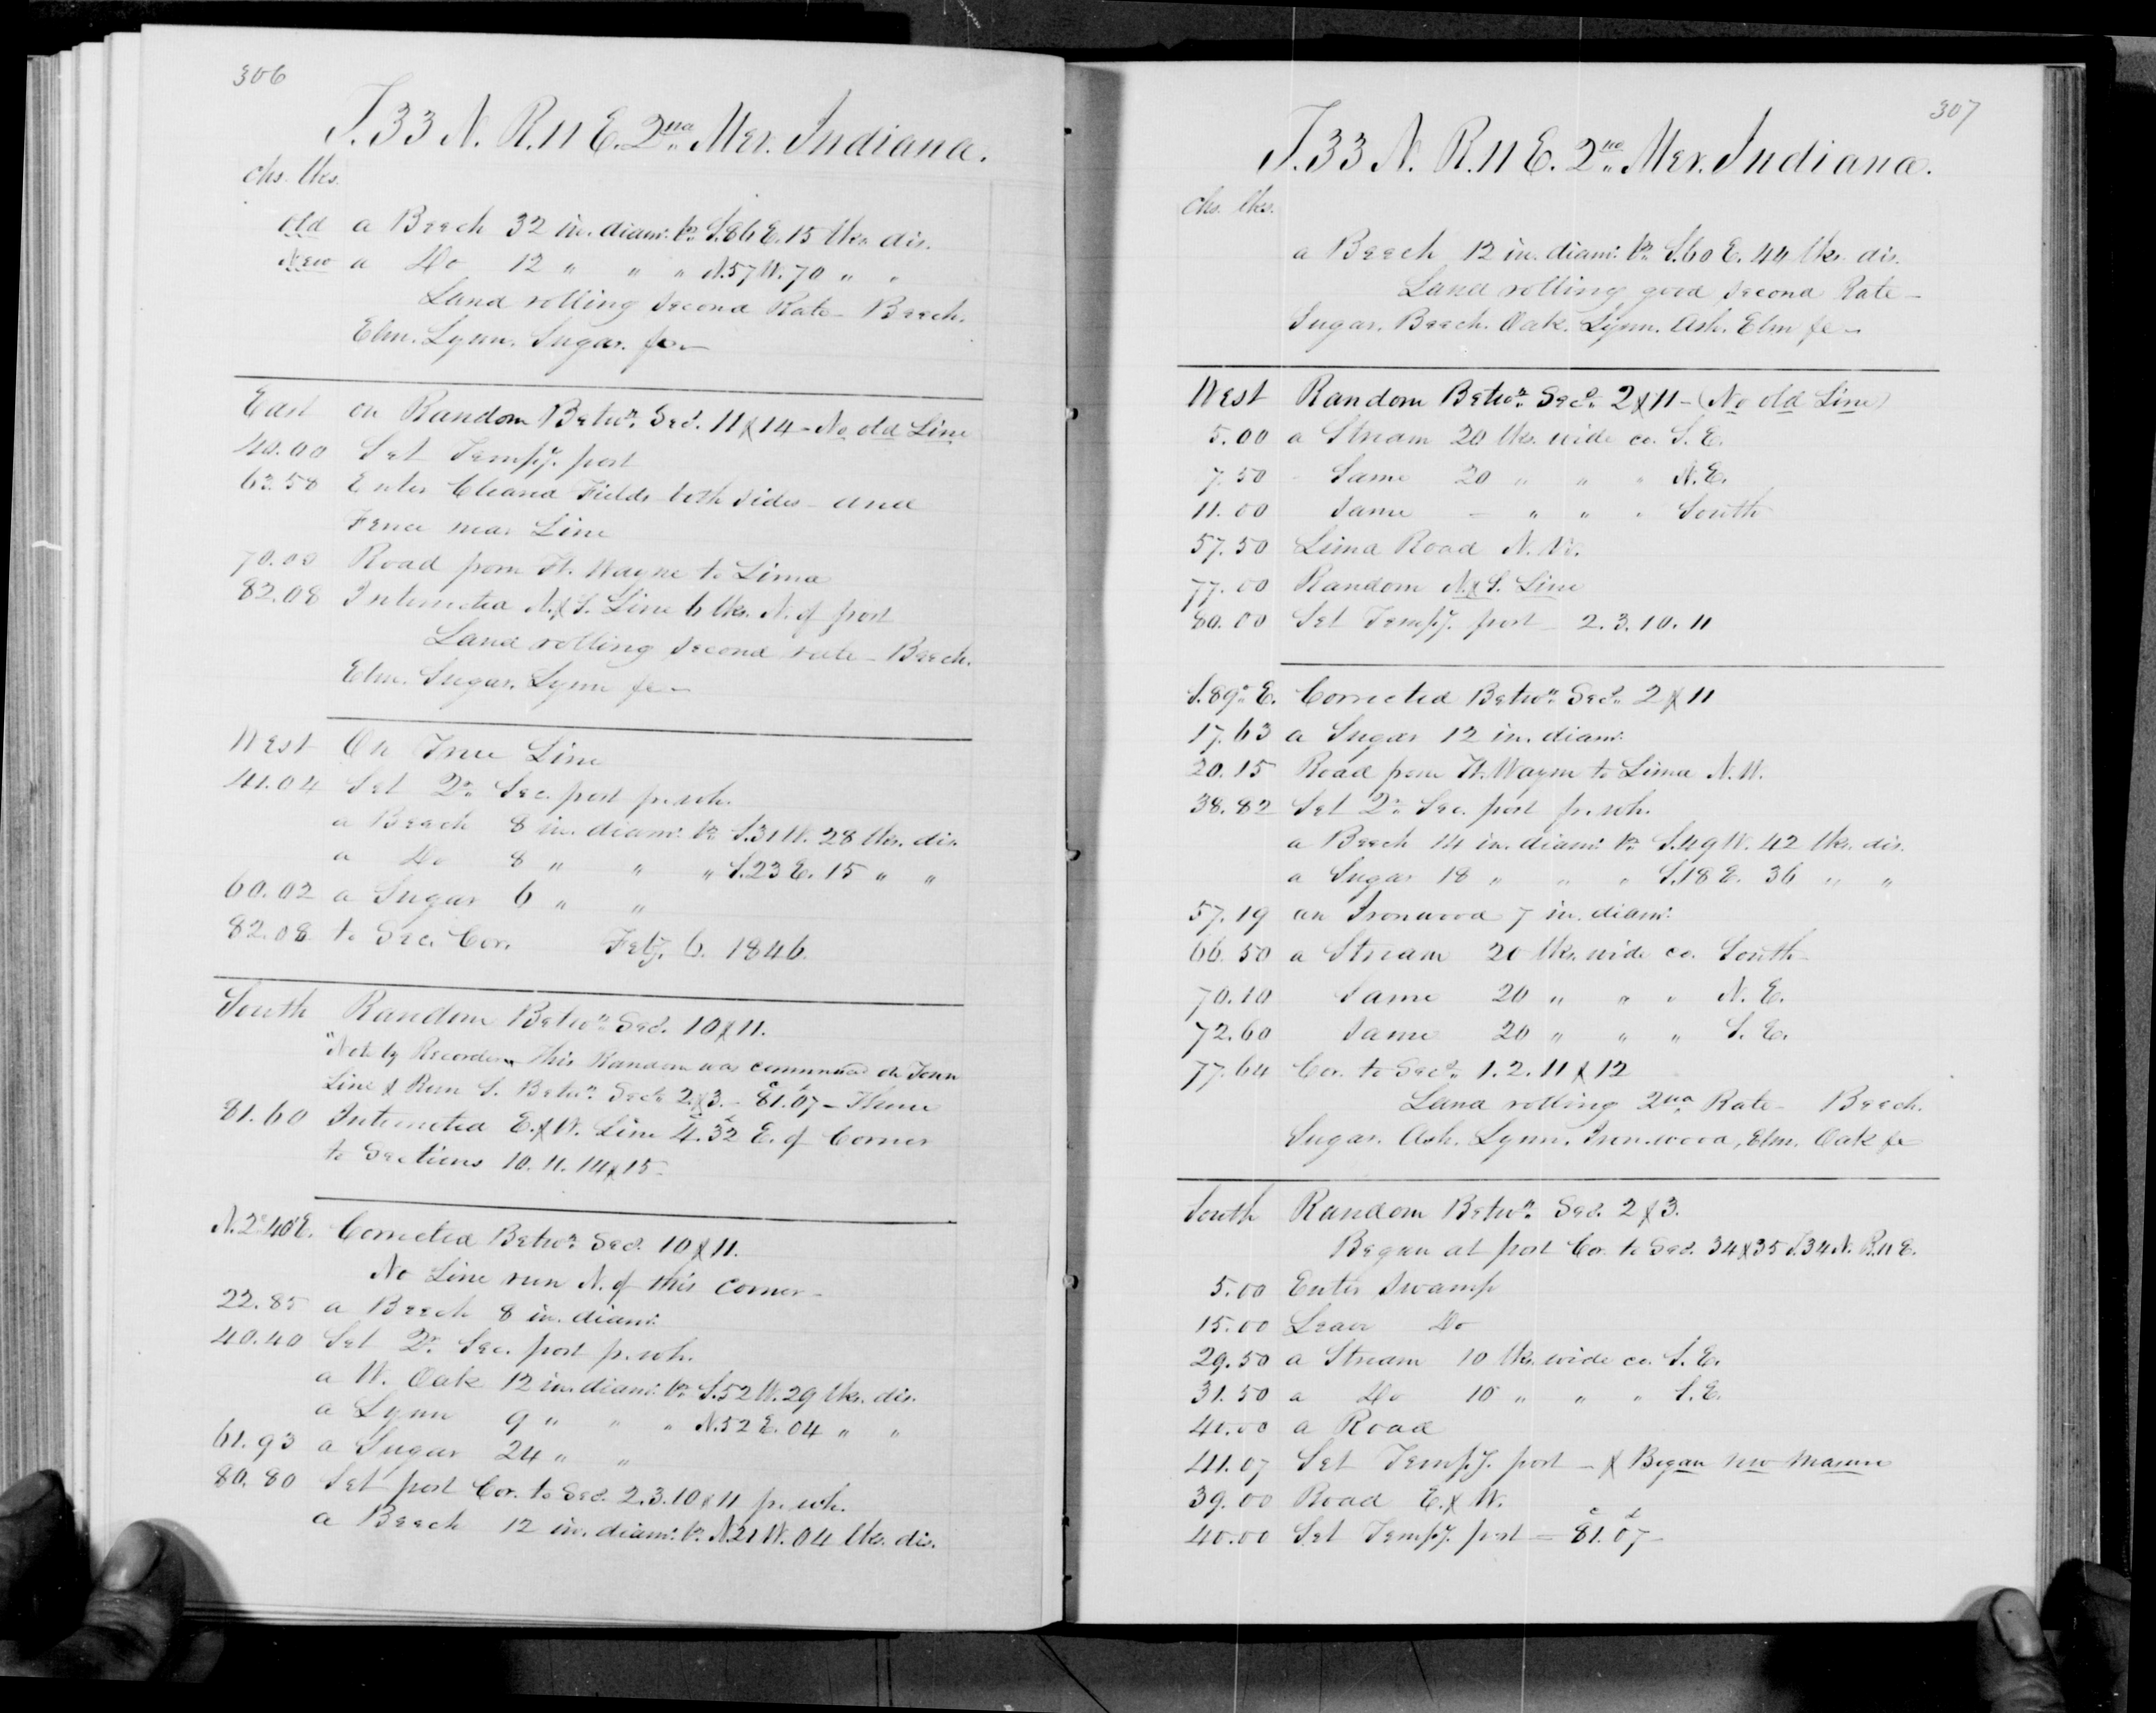 306
T. 33 N. R. 11 E. 2nd Mer. Indiana.
chs. lks.
old a Beech 32 in. diam. br. S. 86 E. 15 lks. dis.
New a Do 12 " " " N. 57 W. 70 " "
Land rolling Second Rate - Beech.
Elm. Lynn. Sugar. &c -
East on Random Betwn. Secs. 11 & 14 - No old Line
40.00 Set Tempy. post
63.58 Enter Cleared Fields both sides - and
Fence near Line
70.00 Road from Ft. Wayne to Lima
82.08 Intersected N. & S. Line 6 lks. N. of post
Land rolling Second rate - Beech.
Elm. Sugar. Lynn &c -
West On True Line
41.04 Set Qr. Sec. post fr. wh.
a Beech 8 in. diam. br. S. 31 W. 28 lks. dis.
a Do 8 " " " S. 23 E. 15 " "
60.02 a Sugar 6 " "
82.08 to Sec. Cor. Feby. 6. 1846.
South Random Betwn. Secs. 10 & 11.
"Note by Recorder This Random was commenced on Town
Line & Run S. Betwn. Secs 2 & 3. - 81.07 - Thence
81.60 Intersected E. & W. Line 4.32 E. of Corner
to Sections 10. 11. 14 & 15 -
N. 2° 40' E. Corrected Betwn. Secs. 10 & 11.
No Line run N. of this Corner -
22.85 a Beech 8 in. diam.
40.40 Set Qr. Sec. post fr. wh.
a W. Oak 12 in. diam. br. S. 52 W. 29 lks. dis.
a Lynn 9 " " " N. 52 E. 04 " "
61.93 a Sugar 24 " "
80.80 Set post Cor. to Secs. 2. 3. 10 & 11 fr. wh.
a Beech 12 in. diam. br. N. 21 W. 04 lks. dis.
307
T. 33 N. R. 11 E. 2nd Mer. Indiana.
chs. lks.
a Beech 12 in. diam. br. S. 60 E. 44 lks. dis.
Land rolling good Second Rate -
Sugar. Beech. Oak. Lynn. Ash. Elm &c -
West Random Betwn. Secs. 2 & 11 - (No old Line)
5.00 a Stream 20 lks. wide co. S. E.
7.50 - Same 20 " " " N. E.
11.00 Same - " " " South
57.50 Lima Road N. W.
77.00 Random N. & S. Line
80.00 Set Tempy. post - 2. 3. 10. 11
S. 89° E. Corrected Betwn. Secs. 2 & 11
17.63 a Sugar 12 in. diam.
20.15 Road from Ft. Wayne to Lima N. W.
38.82 Set Qr. Sec. post fr. wh.
a Beech 14 in. diam. br. S. 49 W. 42 lks. dis.
a Sugar 18 " " " S. 18 E. 36 " "
57.19 an Ironwood 7 in. diam.
66.50 a Stream 20 lks. wide co. South
70.10 Same 20 " " " N. E.
72.60 Same 20 " " " S. E.
77.64 Cor. to Secs. 1. 2. 11 & 12
Land rolling 2nd Rate - Beech.
Sugar. Ash. Lynn. Ironwood, Elm. Oak &c
South Random Betwn. Secs. 2 & 3.
Began at post Cor. to Secs. 34 & 35 T. 34 N. R. 11 E.
5.00 Enter Swamp
15.00 Leave Do
29.50 a Stream 10 lks. wide co. S. E.
31.50 a Do 10 " " " S. E.
40.00 a Road
41.07 Set Tempy. post - & Began new Measure
39.00 Road E. & W.
40.00 Set Tempy. post = 81.07 -